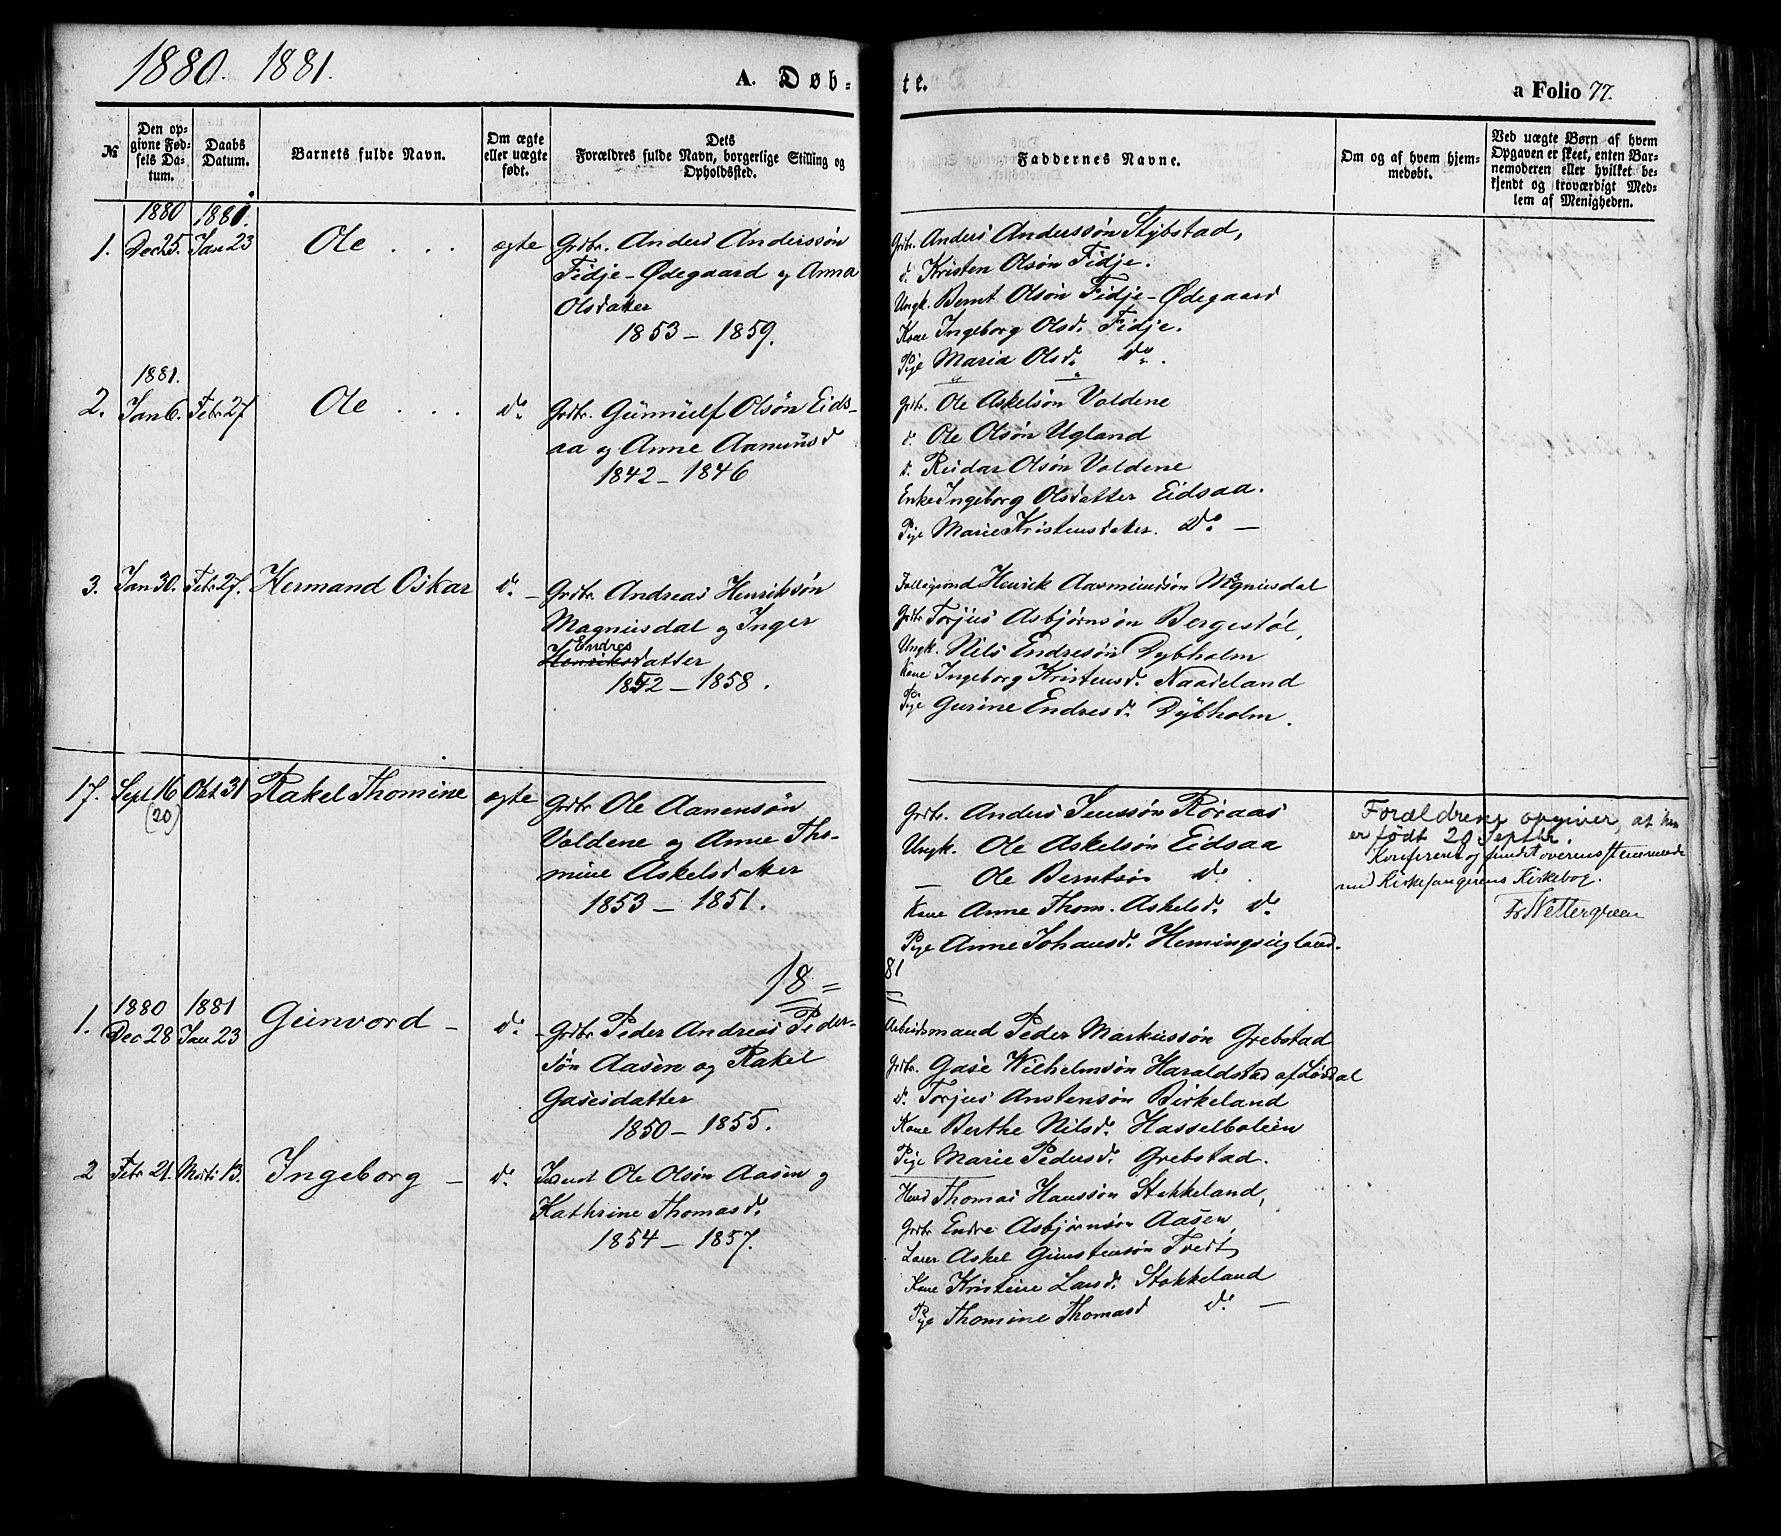 1880. 1881.
A. Døb-
te.
a Folio 77.
№
Den op-
givne Fød-
sels Da-
tum.
Daabs
Datum.
Barnets fulde Navn.
Om ægte
eller uægte
født.
Dets
Forældres fulde Navn, borgerlige Stilling og
Opholdssted.
Faddernes Navne.
Om og af hvem hjem-
medøbt.
Ved uægte Børn af hvem
Opgaven er skeet, enten Bar-
nemoderen eller hvilket be-
kjendt og troværdigt Med-
lem af Menigheden.
1880 1881.
1. Dec 25. Jan 23 Ole . . . ægte Grdbr. Anders Anderssøn
Fidje-Ødegaard og Anna
Olsdatter
1853 - 1859.
Grdbr. Anders Anderssøn Stybstad,
do. Kristen Olsøn Fidje.
Ungk. Bernt Olsøn Fidje-Ødegaard
Kone Ingeborg Olsd. Fidje.
Pige Maria Olsd. do.
1881.
2. Jan 6. Febr 27 Ole . . . do. Grdbr. Gunnulf Olsøn Eids-
aa og Anne Aamunsd
1842 - 1846
Grdbr. Ole Askelsøn Voldene
do. Ole Olsøn Ugland
do. Reidar Olsøn Voldene
Enke Ingeborg Olsdatter Eidsaa.
Pige Marie Kristensdatter. do. -
3. Jan 30. Febr 27. Hermand Oskar do. - Grdbr. Andreas Henriksøn
Magnusdal og Inger
Endres
Henriksdatter
1852 - 1858.
Henrik Aamundsøn Magnusdal
Grdbr Torjus Asbjørnsøn Bergestøl,
Ungk. Nils Endresøn Dybholm
Kone Ingeborg Kristensd. Naadeland
Pige Gurine Endresd. Dybholm.
17. Sept 16 Okt 31 Rakel Thomine ægte Grdbr Ole Aanensøn
(20)
Voldene og Anne Tho-
mine Askelsdatter
1853 - 1851.
Grdbr. Anders Jenssøn Røraas
Ungk. Ole Askelsøn Eidsaa
- Ole Berntsøn do.
Kone Anne Thom. Askelsd. do.
Pige Anne Johansd. Hemingsugland.
Forældrene opgiver, at hun
er født 20 Septbr.
Konfereret og fundet overensstemmende
med Kirkesangerens Kirkebog.
Fr Wettergreen
18 =
81
=
1880 1881
1. Dec 28 Jan 23 Gunvord - do. - Grdbr Peder Andreas Peder-
søn Aasen og Rakel
Gasesdatter
1850 - 1855.
Arbeidsmand Peder Markussøn Grebstad
Grdbr. Gase Wilhelmsøn Haraldstad af Løvdal
do. Torjus Anstensøn Birkeland
Kone Berthe Nilsd. Hasselboleien
Pige Marie Pedersd. Grebstad.
2 Febr 21. Marts 13. Ingeborg - do. Ole Olsøn Aasen og
Kathrine Thomasd.
1854 - 1857.
Thomas Hanssøn Stokkeland,
Grdbr Endre Asbjørnsøn Aasen,
Askel Gunstensøn Tvedt
Kone Kristine Larsd. Stokkeland
Pige Thomine Thomasd do. -